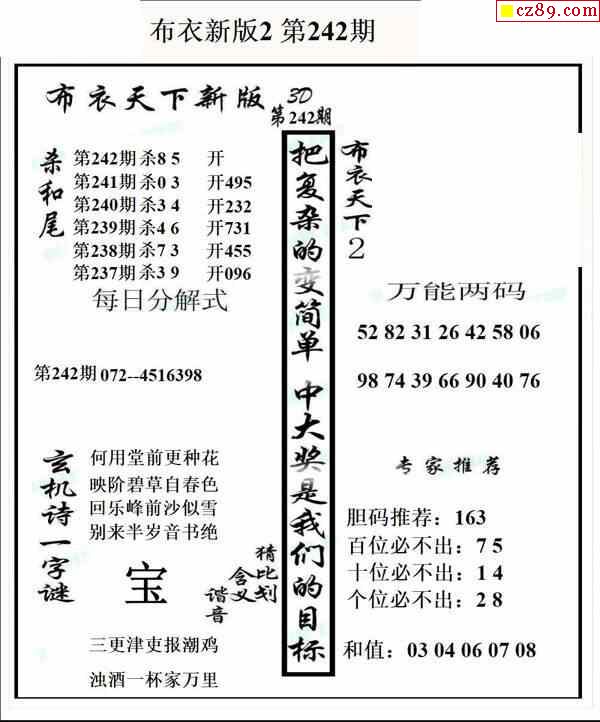 cz89.com
布衣新版2 第242期
布衣天下新版
3D
第242期
杀和尾
第242期 杀8 5 开
第241期 杀0 3 开495
第240期 杀3 4 开232
第239期 杀4 6 开731
第238期 杀7 3 开455
第237期 杀3 9 开096
每日分解式
第242期 072--4516398
玄机诗一字谜
何用堂前更种花
映阶碧草自春色
回乐峰前沙似雪
别来半岁音书绝
宝
猜比划
含义
谐音
三更津吏报潮鸡
浊酒一杯家万里
把复杂的变简单 中大奖是我们的目标
布衣天下2
万能两码
52 82 31 26 42 58 06
98 74 39 66 90 40 76
专家推荐
胆码推荐：163
百位必不出：7 5
十位必不出：1 4
个位必不出：2 8
和值：03 04 06 07 08